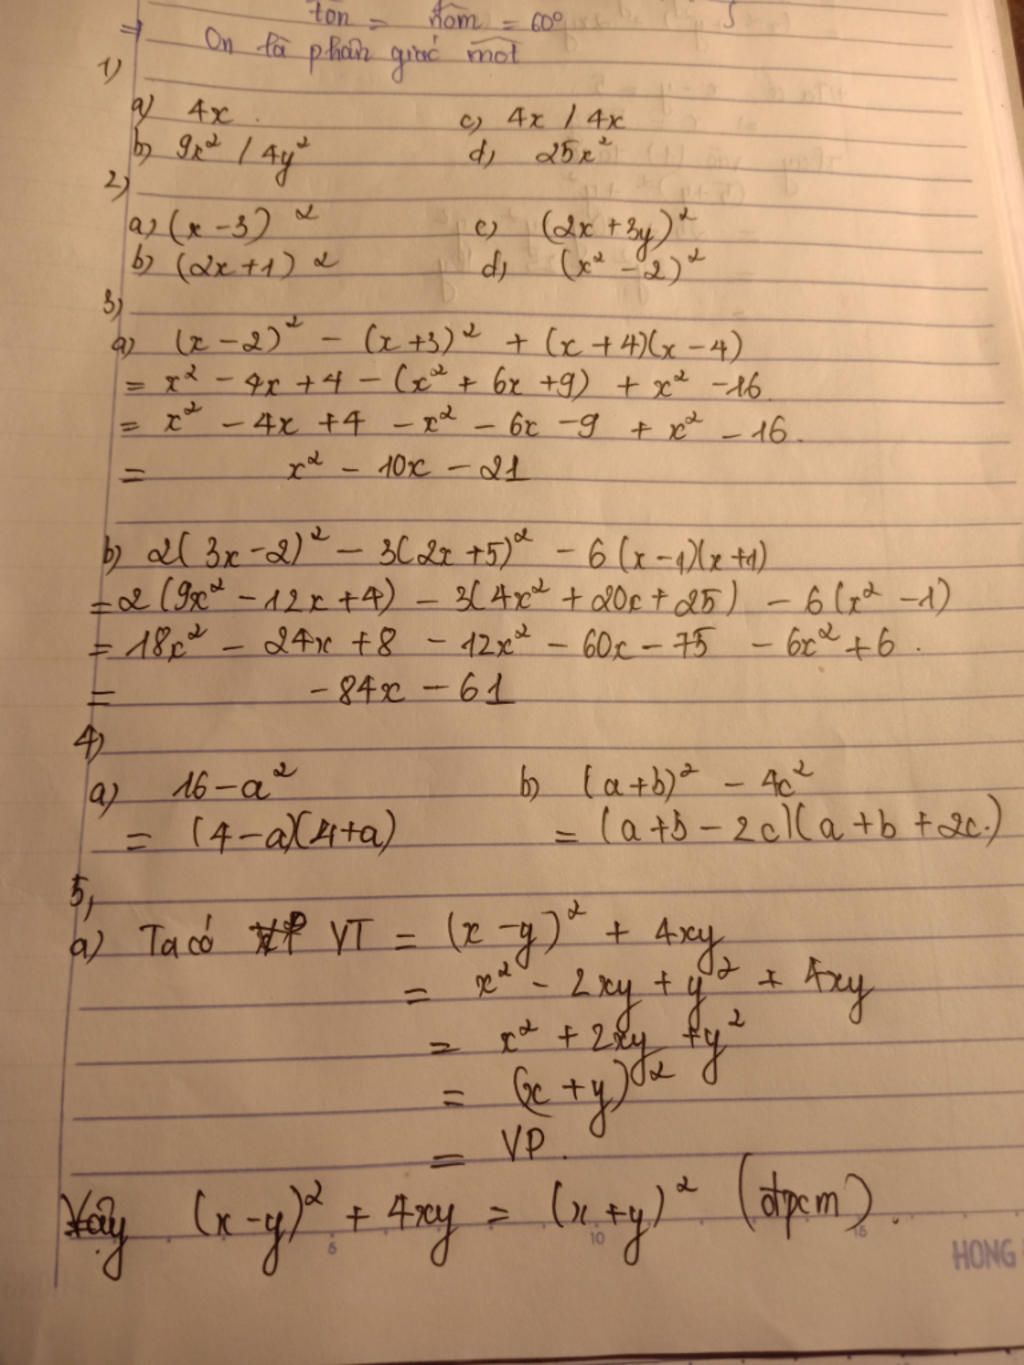 ⇒ tôn = nôm = 60°
On là phân giác mot
1)
a) 4x. c) 4x / 4x
b) 9x² / 4y² d) 25x²
2)
a) (x-3)² c) (2x+3y)²
b) (2x+1)² d) (x²-2)²
3)
a) (x-2)² - (x+3)² + (x+4)(x-4)
= x² - 4x + 4 - (x² + 6x + 9) + x² - 16
= x² - 4x + 4 - x² - 6x - 9 + x² - 16.
= x² - 10x - 21
b) 2(3x-2)² - 3(2x+5)² - 6(x-1)(x+1)
= 2(9x² - 12x + 4) - 3(4x² + 20x + 25) - 6(x² - 1)
= 18x² - 24x + 8 - 12x² - 60x - 75 - 6x² + 6.
= -84x - 61
4)
a) 16 - a² b) (a+b)² - 4c²
= (4-a)(4+a) = (a+b-2c)(a+b+2c.)
5,
a) Ta có VT = (x-y)² + 4xy
= x² - 2xy + y² + 4xy
= x² + 2xy + y²
= (x+y)²
= VP.
Vậy (x-y)² + 4xy = (x+y)² (đpcm).
5 10 15
HONG